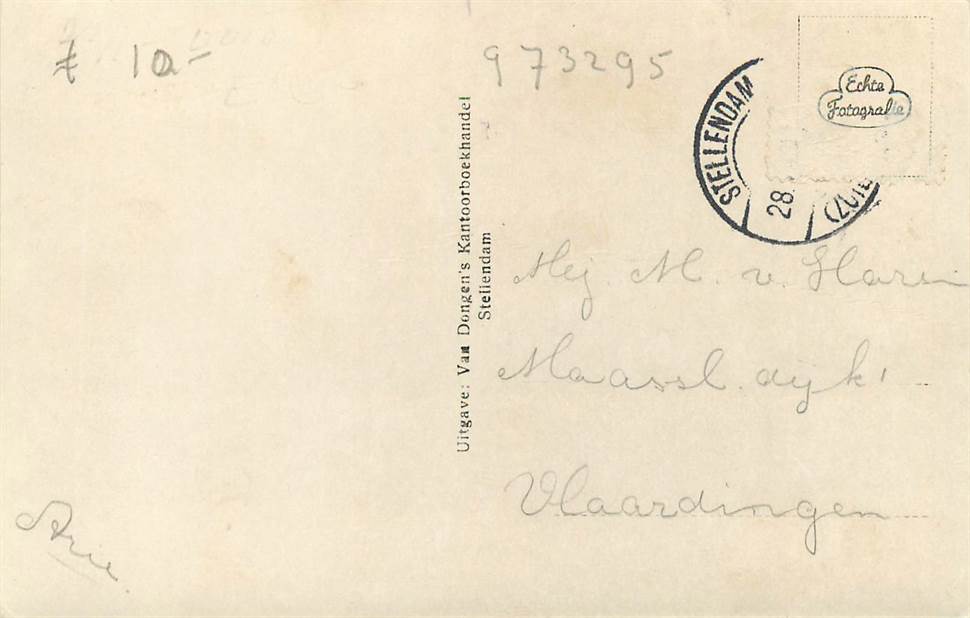 f 10-
973295
Echte
Fotografie
STELLENDAM
28.
(ZUID
Uitgave: Van Dongen's Kantoorboekhandel
Stellendam
Mej. M. v.
Maassl. dijk
Vlaardingen
Arie